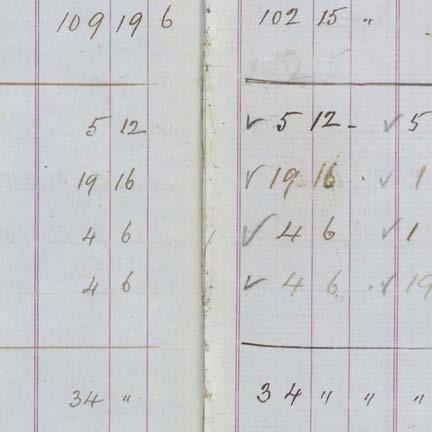 109 19 6
5 12
19 16
4 6
4 6
34 "
102 15 "
✓ 5 12 - ✓ 5
✓ 19 16 . ✓ 1
✓ 4 6 ✓ 1
✓ 4 6 . ✓ 19
34 " " "